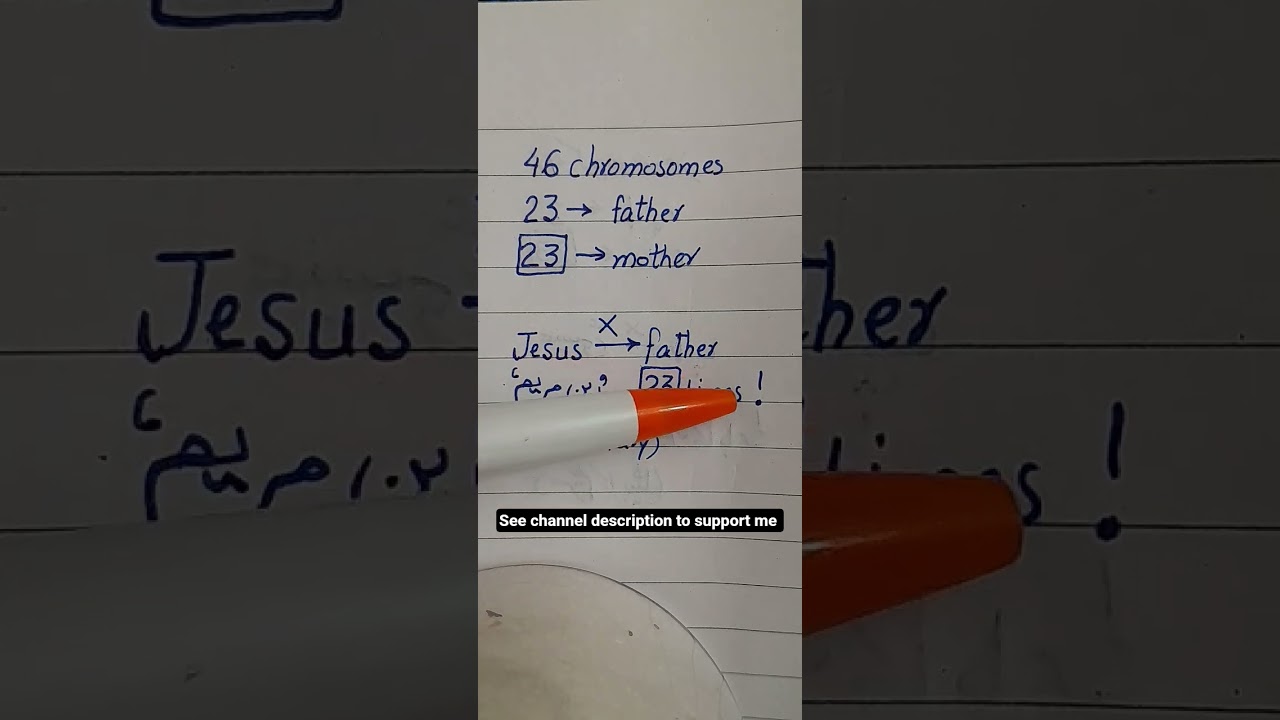 46 chromosomes
23 → father
23 → mother
Jesus X→ father
مريم 23 !
See channel description to support me